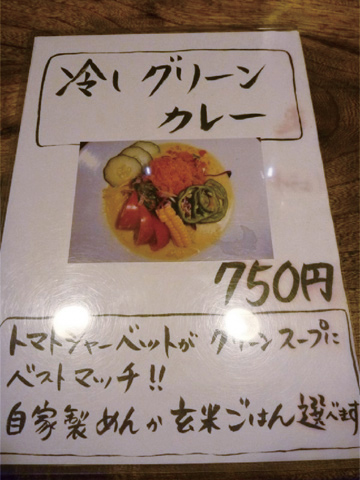 冷しグリーン
カレー
750円
トマトシャーベットがグリーンスープに
ベストマッチ!!
自家製めんか玄米ごはん選べます